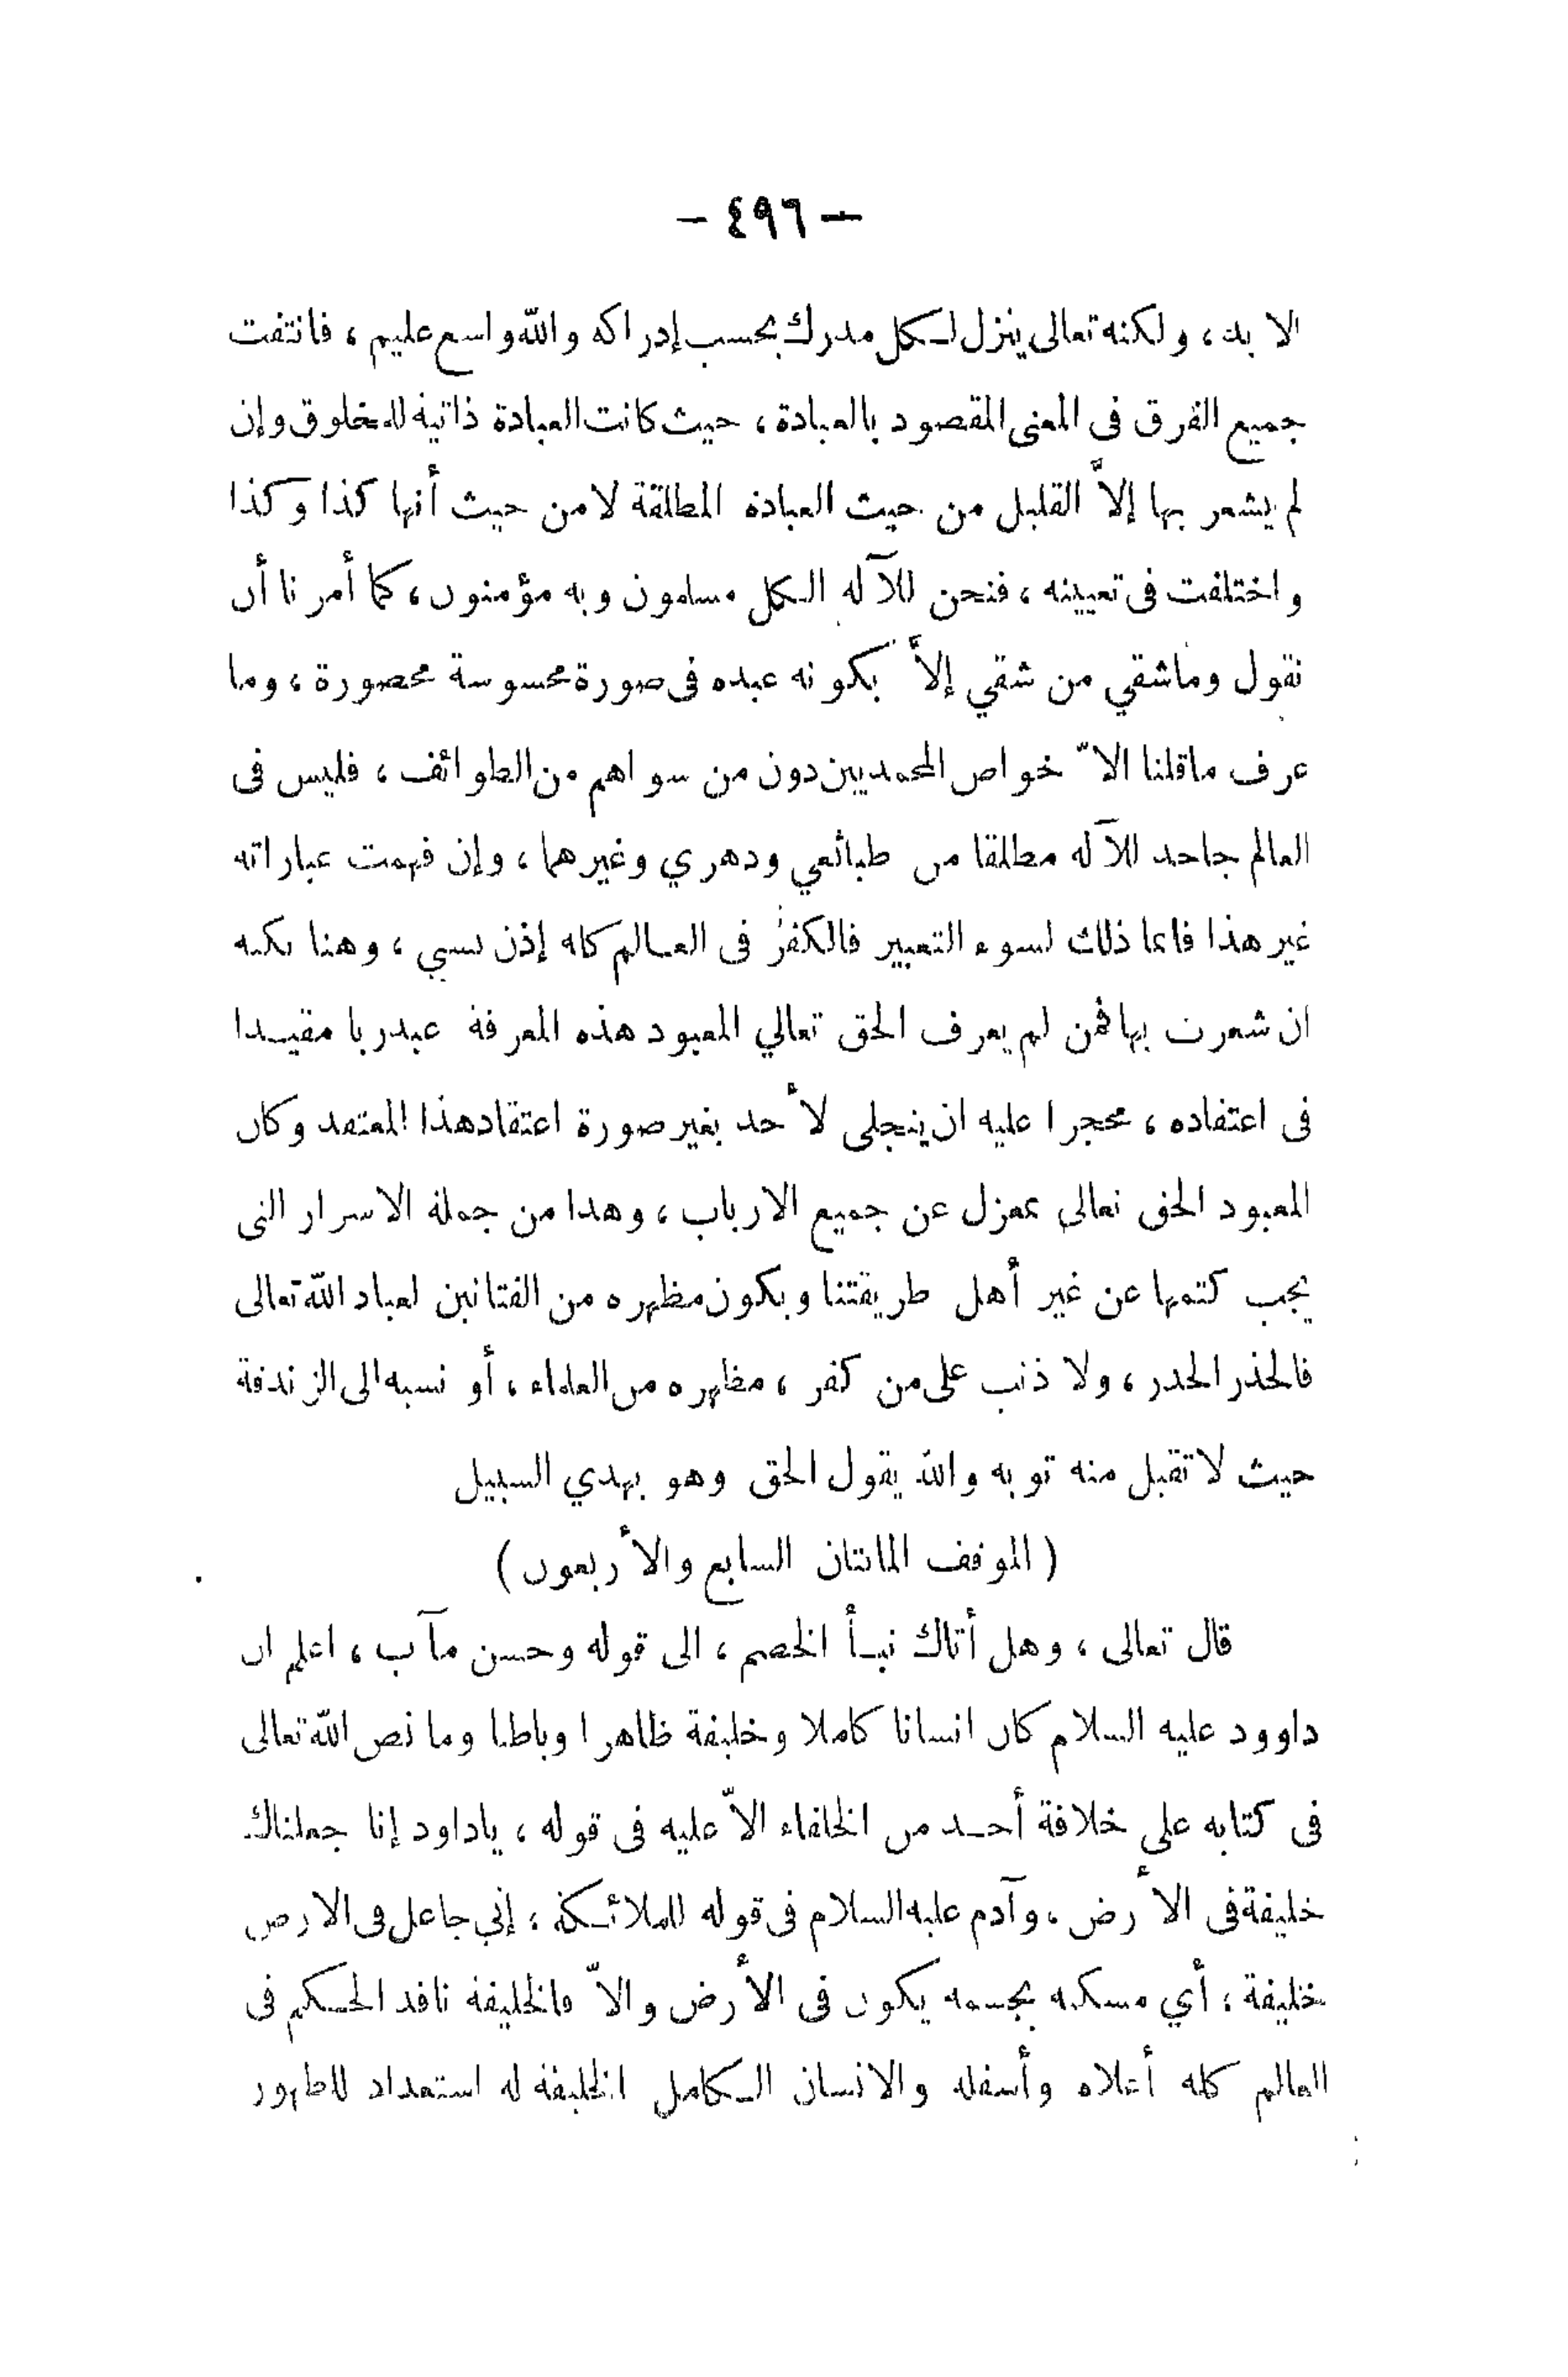 — ٤٩٦ —
الا به، ولكنه تعالى ينزل لكل مدرك بحسب إدراكه والله واسع عليم، فانتفت
جميع الفرق في المعنى المقصود بالعبادة، حيث كانت العبادة ذاتية للمخلوق وإن
لم يشعر بها إلاّ القليل من حيث العبادة المطلقة لا من حيث أنها كذا وكذا
واختلفت في تعيينه، فنحن للآله الكل مسلمون وبه مؤمنون، كما أمرنا أن
نقول وما شقي من شقي إلاّ بكونه عبده في صورة محسوسة محصورة، وما
عرف ما قلنا الاّ خواص المحمديين دون من سواهم من الطوائف، فليس في
العالم جاحد للآله مطلقا من طبائعي ودهري وغيرهما، وإن فهمت عباراته
غير هذا فانما ذلك لسوء التعبير فالكفر في العالم كله إذن نسبي، وهنا نكتة
ان شعرت بها فمن لم يعرف الحق تعالي المعبود هذه المعرفة عبد ربا مقيدا
في اعتقاده، محجرا عليه ان ينجلى لأحد بغير صورة اعتقاد هذا المعتقد وكان
المعبود الحق تعالى بمعزل عن جميع الارباب، وهذا من جملة الاسرار التي
يجب كتمها عن غير أهل طريقتنا ويكون مظهره من الفتانين لعباد الله تعالى
فالحذر الحذر، ولا ذنب على من كفر، مظهره من العلماء، أو نسبه الى الزندقة
حيث لا تقبل منه توبه والله يقول الحق وهو يهدي السبيل
(الموقف المائتان السابع والأربعون)
قال تعالى، وهل أتاك نبأ الخصم، الى قوله وحسن مآب، اعلم ان
داوود عليه السلام كان انسانا كاملا وخليفة ظاهرا وباطنا وما نص الله تعالى
في كتابه على خلافة أحد من الخلفاء الاّ عليه في قوله، ياداود إنا جعلناك
خليفة في الأرض، وآدم عليه السلام في قوله للملائكة، إني جاعل في الارض
خليفة، أي مسكنه بجسمه يكون في الأرض والاّ فالخليفة نافذ الحكم في
العالم كله أعلاه وأسفله والانسان الكامل الخليفة له استعداد للظهور